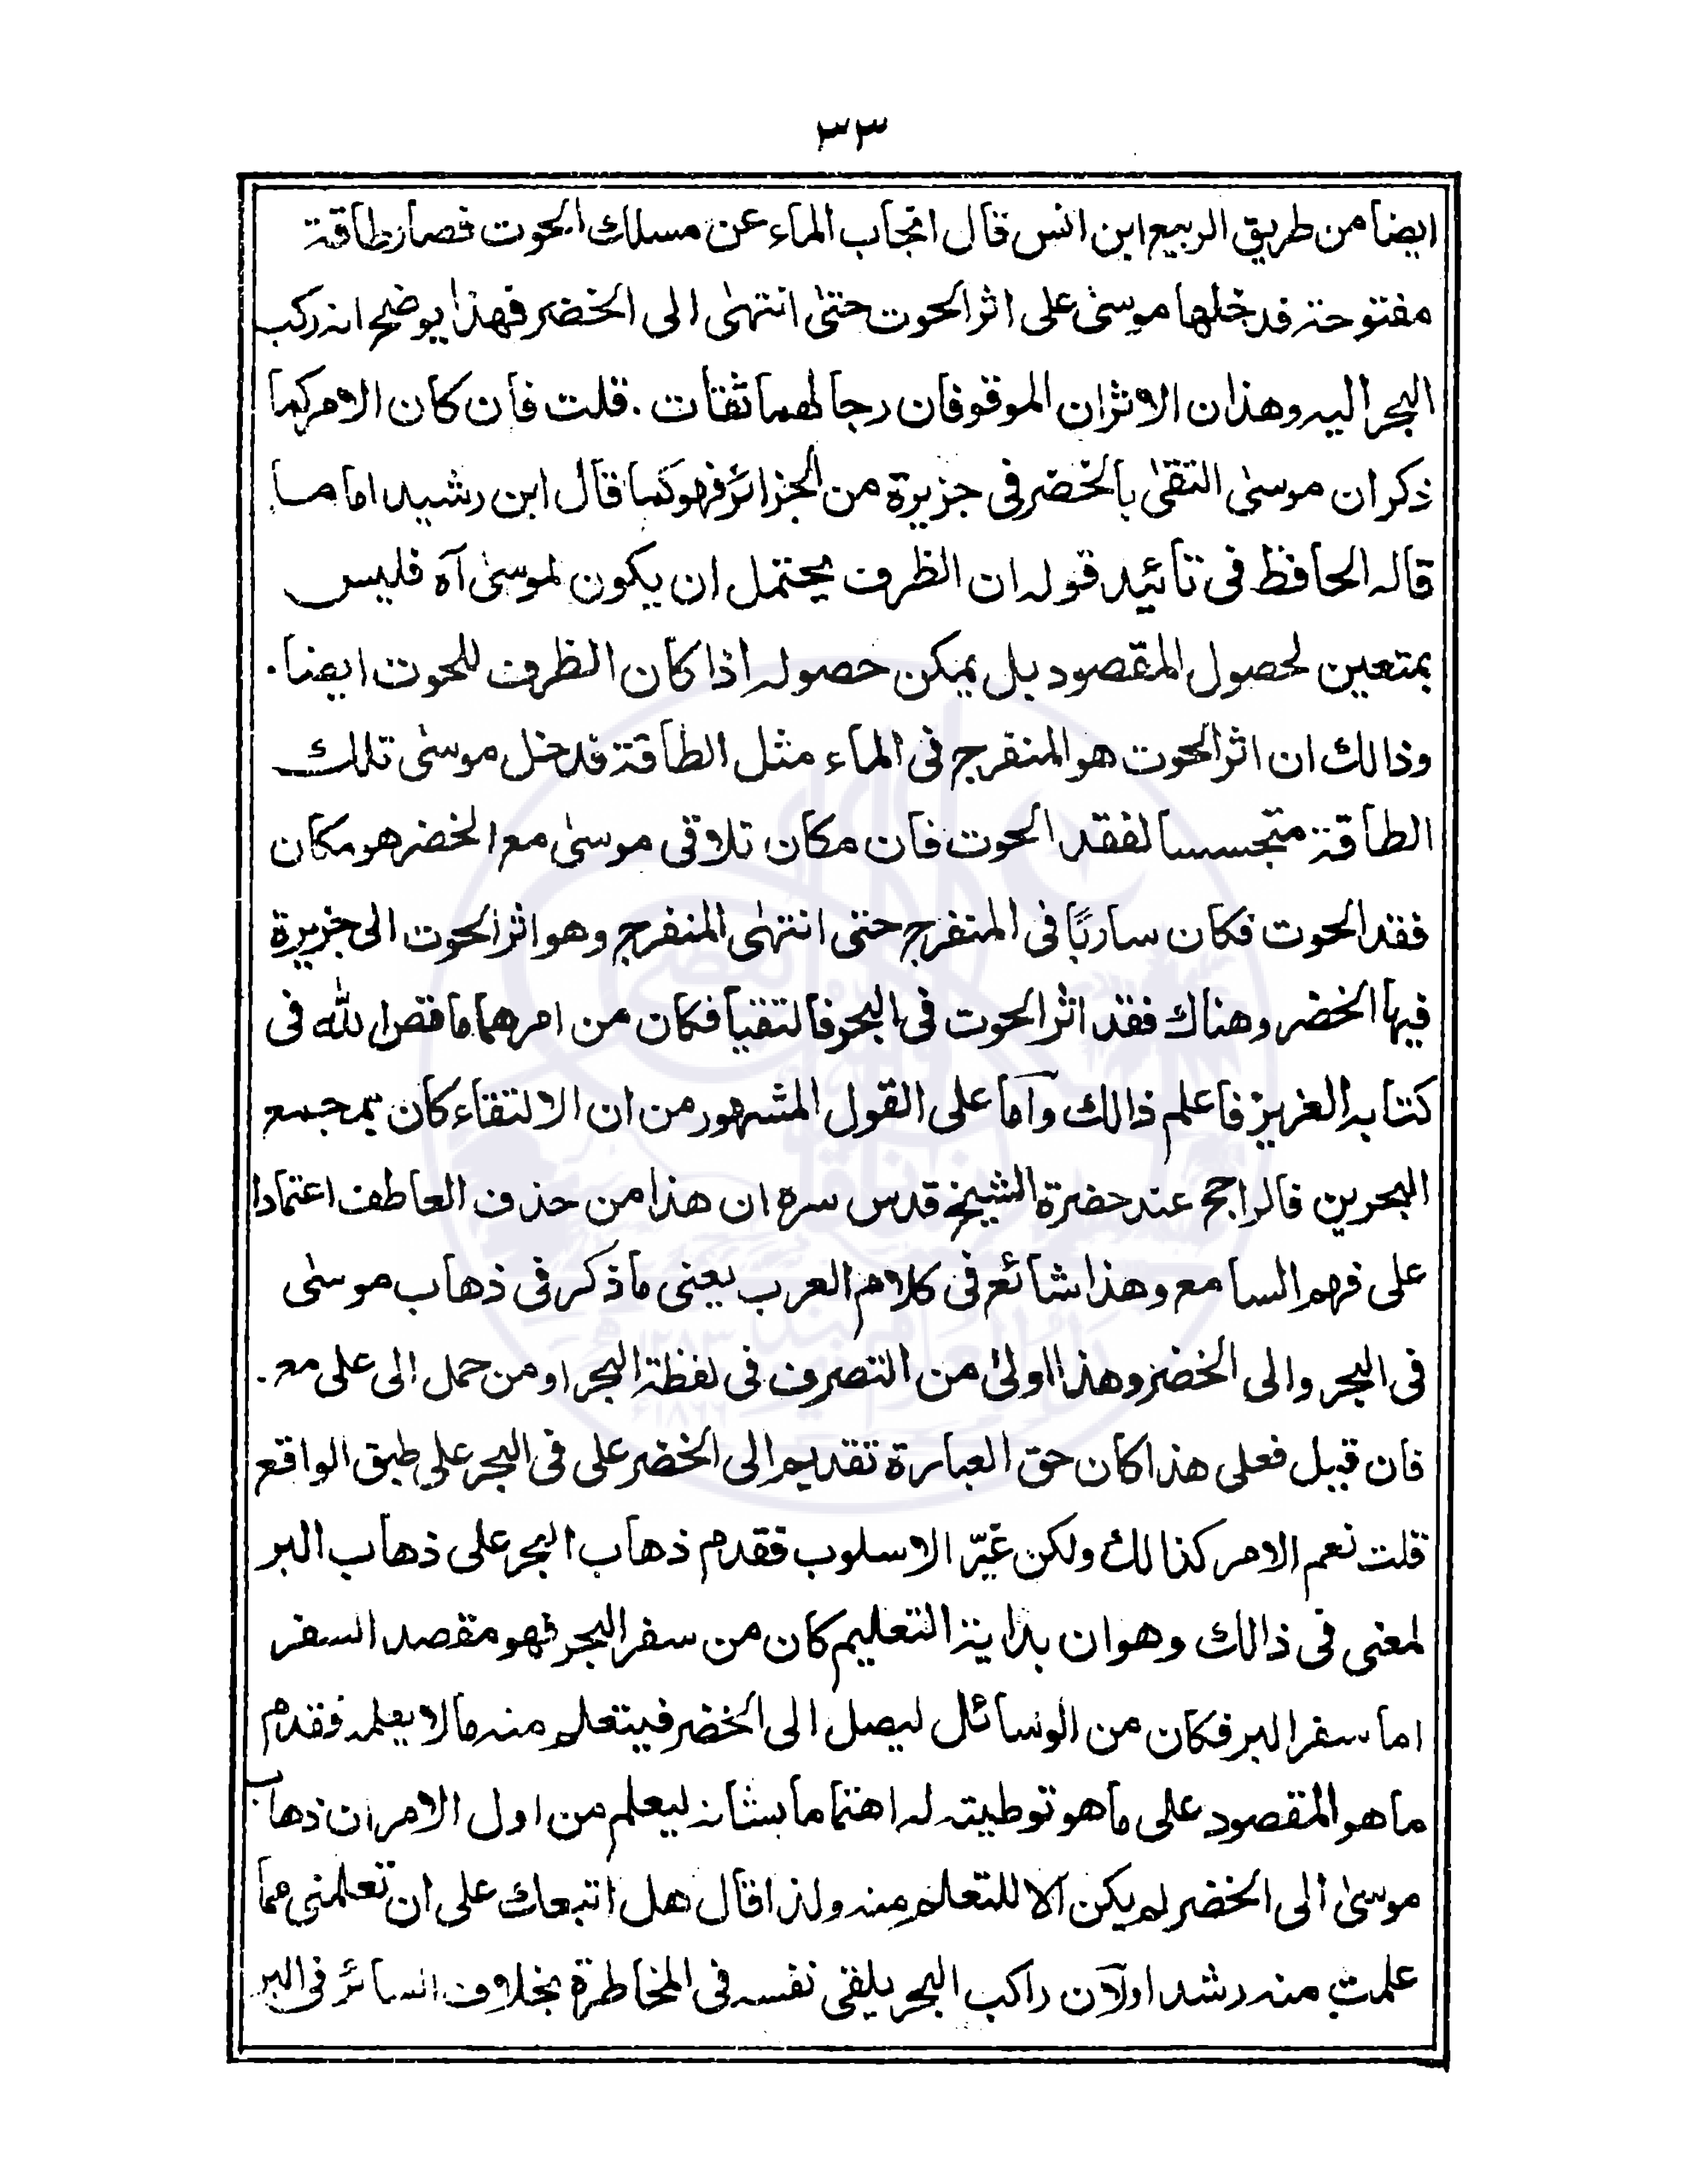 ٣٣
ايضا من طريق الربيع ابن انس قال انجاب الماء عن مسلك الحوت فصار طاقة
مفتوحة فدخلها موسىٰ على اثر الحوت حتىٰ انتهىٰ الى الخضر فهذا يوضح انه ركب
البحر اليه وهذان الاثران الموقوفان رجالهما ثقات . قلت فان كان الامر كما
ذكر ان موسىٰ التقىٰ بالخضر فى جزيرة من الجزائر فهو كما قال ابن رشيد اما ما
قاله الحافظ فى تائيد قوله ان الظرف يحتمل ان يكون لموسىٰ آه فليس
بمتعين لحصول المقصود بل يمكن حصوله اذا كان الظرف للحوت ايضا .
وذالك ان اثر الحوت هو المنفرج فى الماء مثل الطاقة فدخل موسىٰ تلك
الطاقة متجسسا لفقد الحوت فان مكان تلاقى موسىٰ مع الخضر هو مكان
فقد الحوت فكان ساربًا فى المنفرج حتى انتهىٰ المنفرج وهو اثر الحوت الى جزيرة
فيها الخضر وهناك فقد اثر الحوت فى البحر فالتقيا فكان من امرهما ما قص الله فى
كتابه العزيز فاعلم ذالك وآما على القول المشهور من ان الالتقاء كان بمجمع
البحرين فالراجح عند حضرة الشيخ قدس سره ان هذا من حذف العاطف اعتمادا
على فهم السامع وهذا شائع فى كلام العرب يعنى ما ذكر فى ذهاب موسىٰ
فى البحر والى الخضر وهذا اولىٰ من التصرف فى لفظة البحر او من حمل الى على مع .
فان قيل فعلى هذا كان حق العبارة تقديم الى الخضر على فى البحر على طبق الواقع
قلت نعم الامر كذالك ولكن غيّر الاسلوب فقدم ذهاب البحر على ذهاب البر
لمعنى فى ذالك وهو ان بداية التعليم كان من سفر البحر فهو مقصد السفر
اما سفر البر فكان من الوسائل ليصل الى الخضر فيتعلم منه مالا يعلمه فقدم
ما هو المقصود على ما هو توطيته له اهتماما بشانه ليعلم من اول الامر ان ذهاب
موسىٰ الى الخضر لم يكن الا للتعلم منه ولذا قال هل اتبعك على ان تعلمنى مما
علمت منه رشدا ولآن راكب البحر يلقى نفسه فى المخاطرة بخلاف السائر فى البر